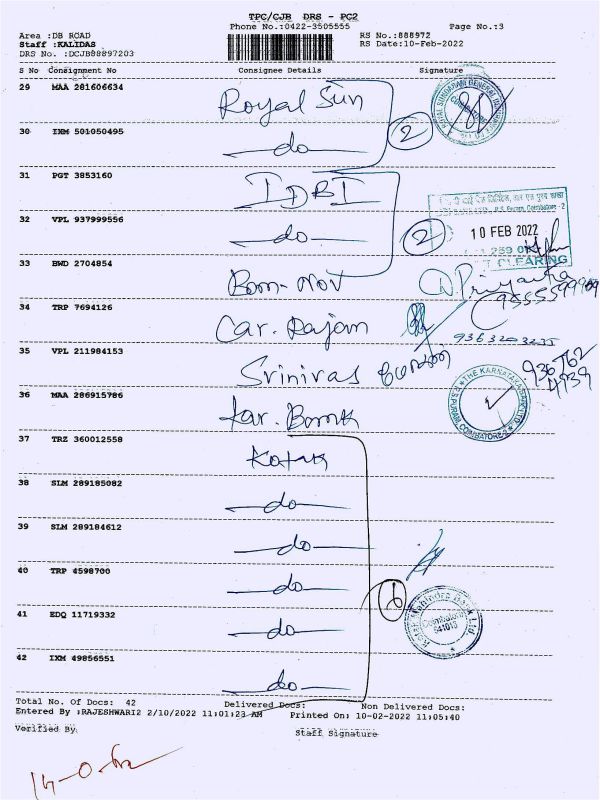 TPC/CJB DRS - PC2
Phone No.:0422-3505555 Page No.:3
Area :DB ROAD RS No.:888972
Staff :KALIDAS RS Date:10-Feb-2022
DRS No. :DCJB88897203
S No Consignment No Consignee Details Signature
29 MAA 281606634 Royal Sun
30 IXM 501050495 do 2
31 PGT 3853160 IDBI
32 VPL 937999556 do 2
10 FEB 2022
CLEARING
33 BWD 2704854 Bom-Mov D. Priyanka
34 TRP 7694126 Car. Rajam
9363203235
35 VPL 211984153 Srinivas
936762
4739
36 MAA 286915786 Kar. Bank
THE KARNATAKA BANK LTD
R.S PURAM, COIMBATORE-2
37 TRZ 360012558 Kotak
38 SLM 289185082 do
39 SLM 289184612 do
40 TRP 4598700 do
6
41 EDQ 11719332 do
Kotak Mahindra Bank Ltd
Coimbatore
641018
42 IXM 49856551 do
Total No. Of Docs: 42 Delivered Docs: Non Delivered Docs:
Entered By :RAJESHWARI2 2/10/2022 11:01:23 AM Printed On: 10-02-2022 11:05:40
Verified By. Staff Signature